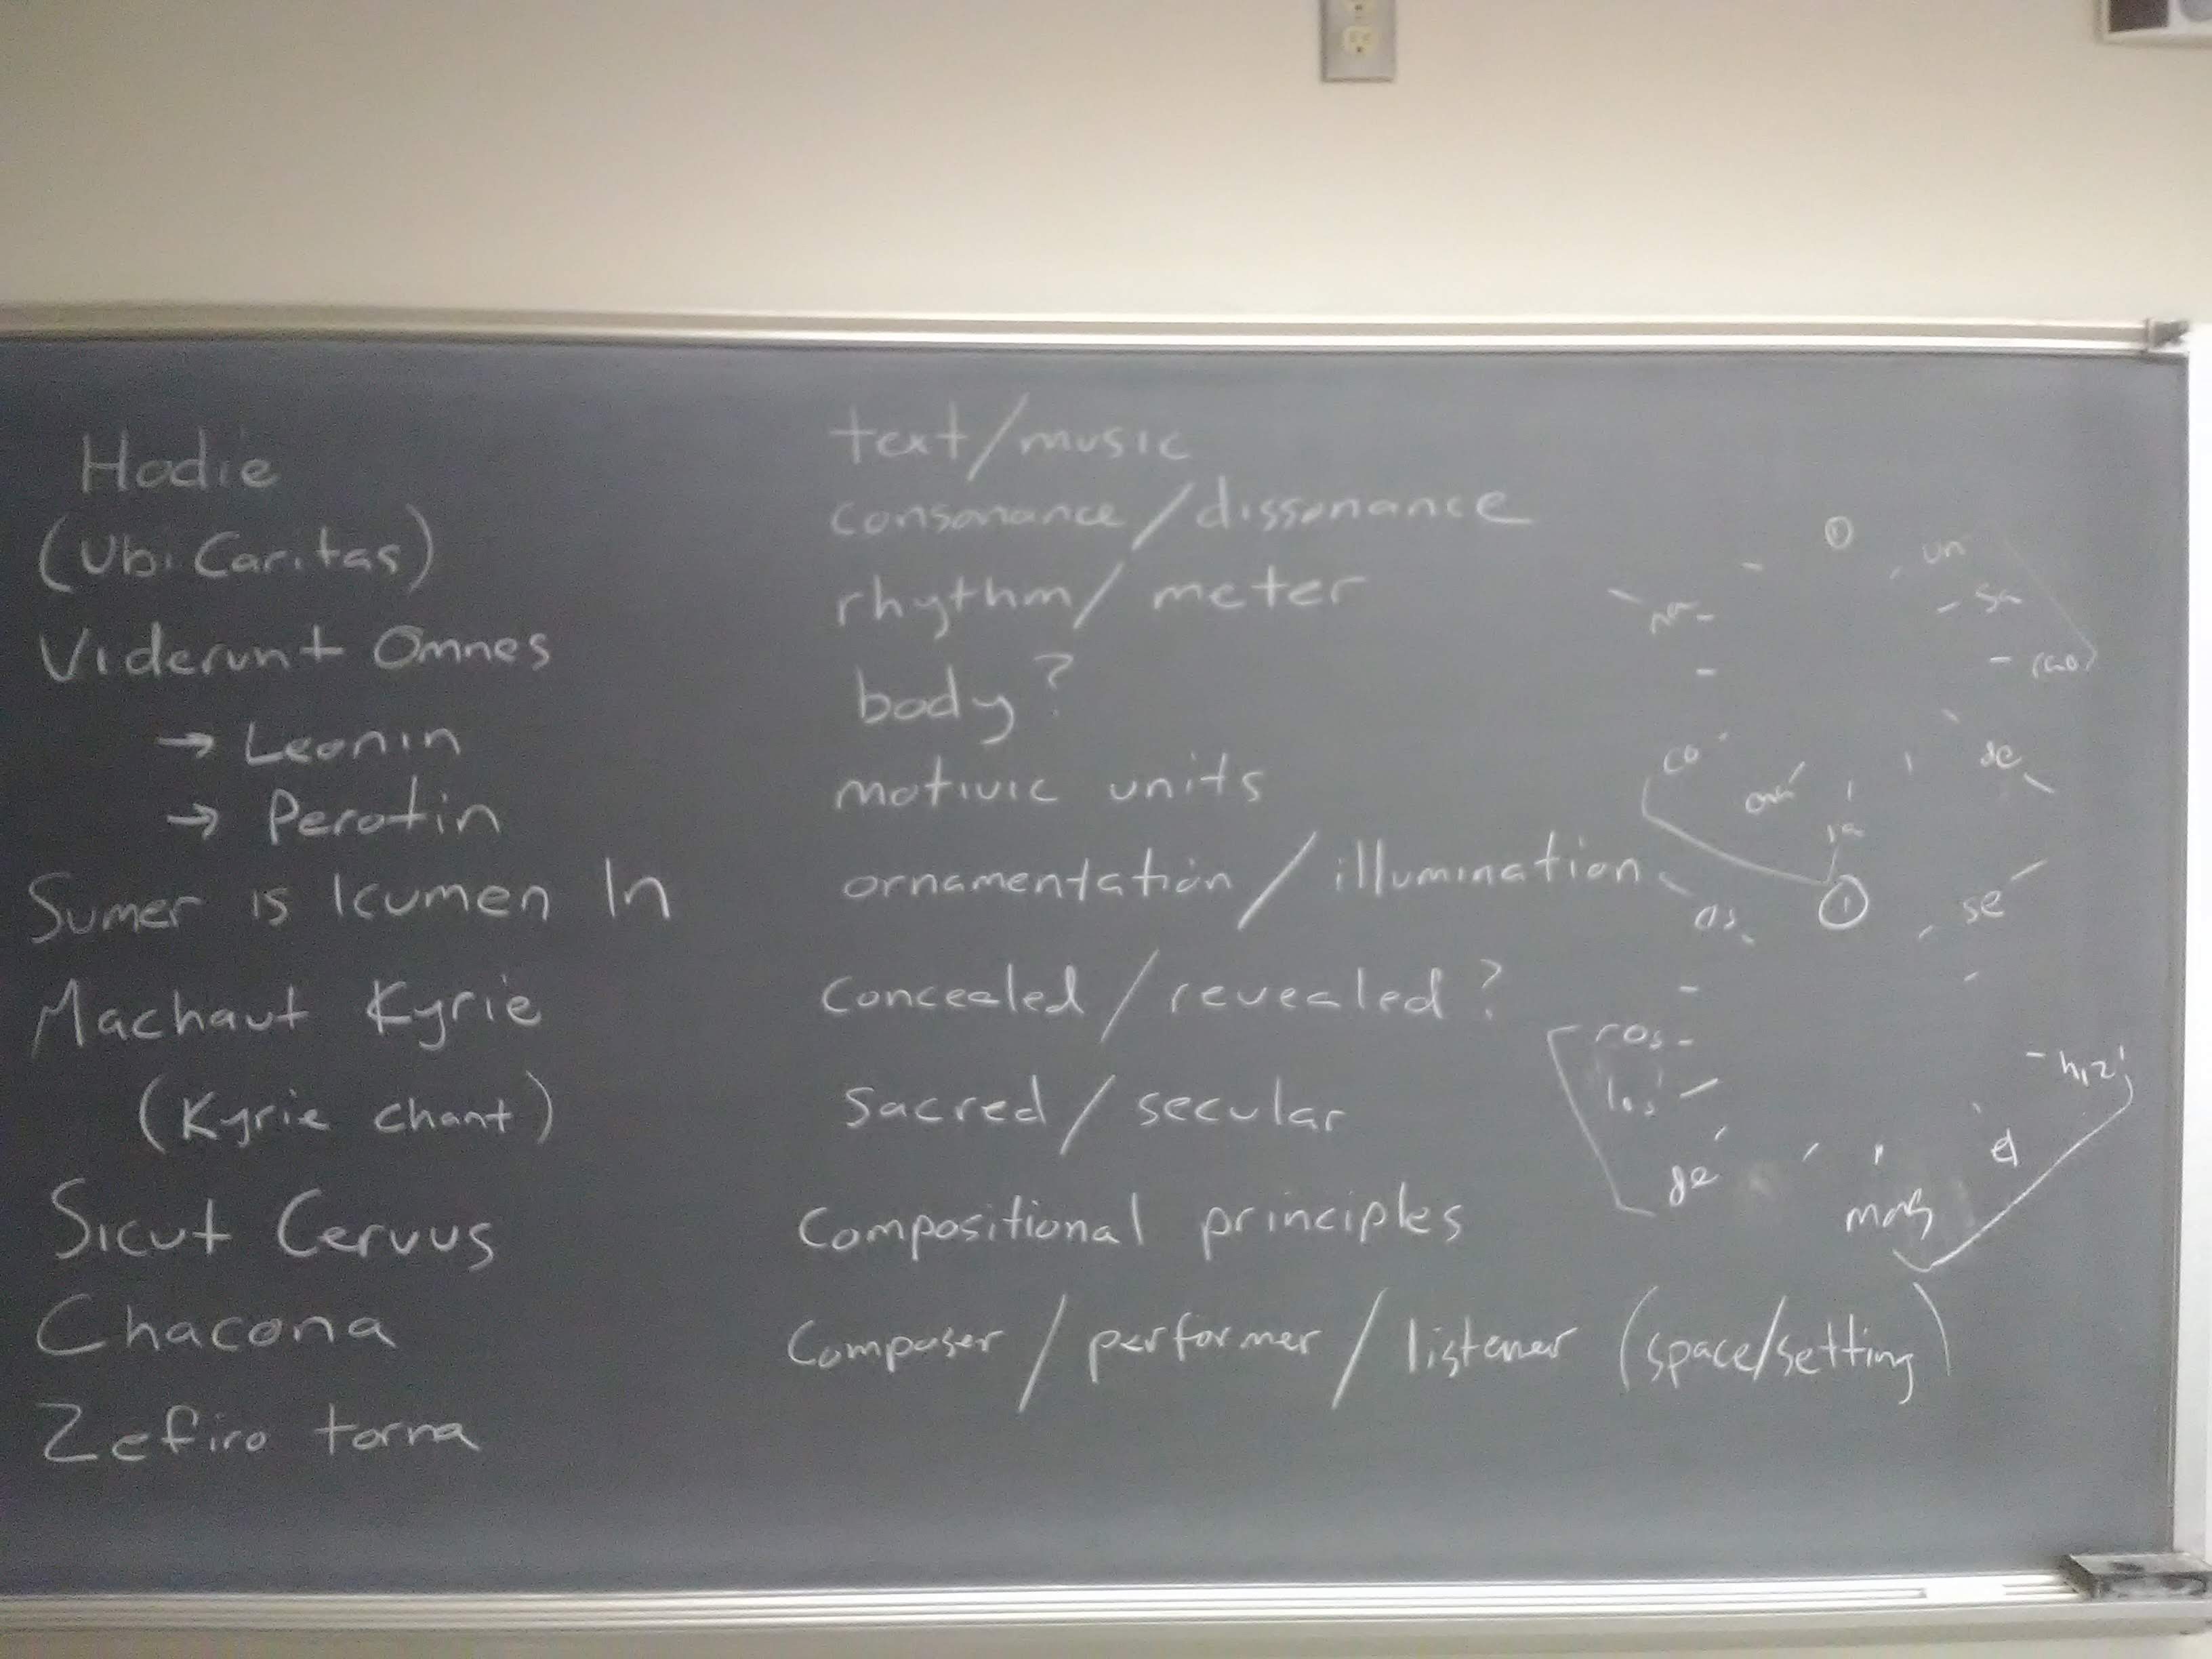 Hodie
(Ubi Caritas)
Viderunt Omnes
→ Leonin
→ Perotin
Sumer is Icumen In
Machaut Kyrie
(Kyrie chant)
Sicut Cervus
Chacona
Zefiro torna
text/music
consonance/dissonance
rhythm/meter
body?
motivic units
ornamentation/illumination
Concealed/revealed?
Sacred/secular
Compositional principles
Composer/performer/listener (space/setting)
①
un
sa
de
co
①
se
os
ros
los
de
mas
el